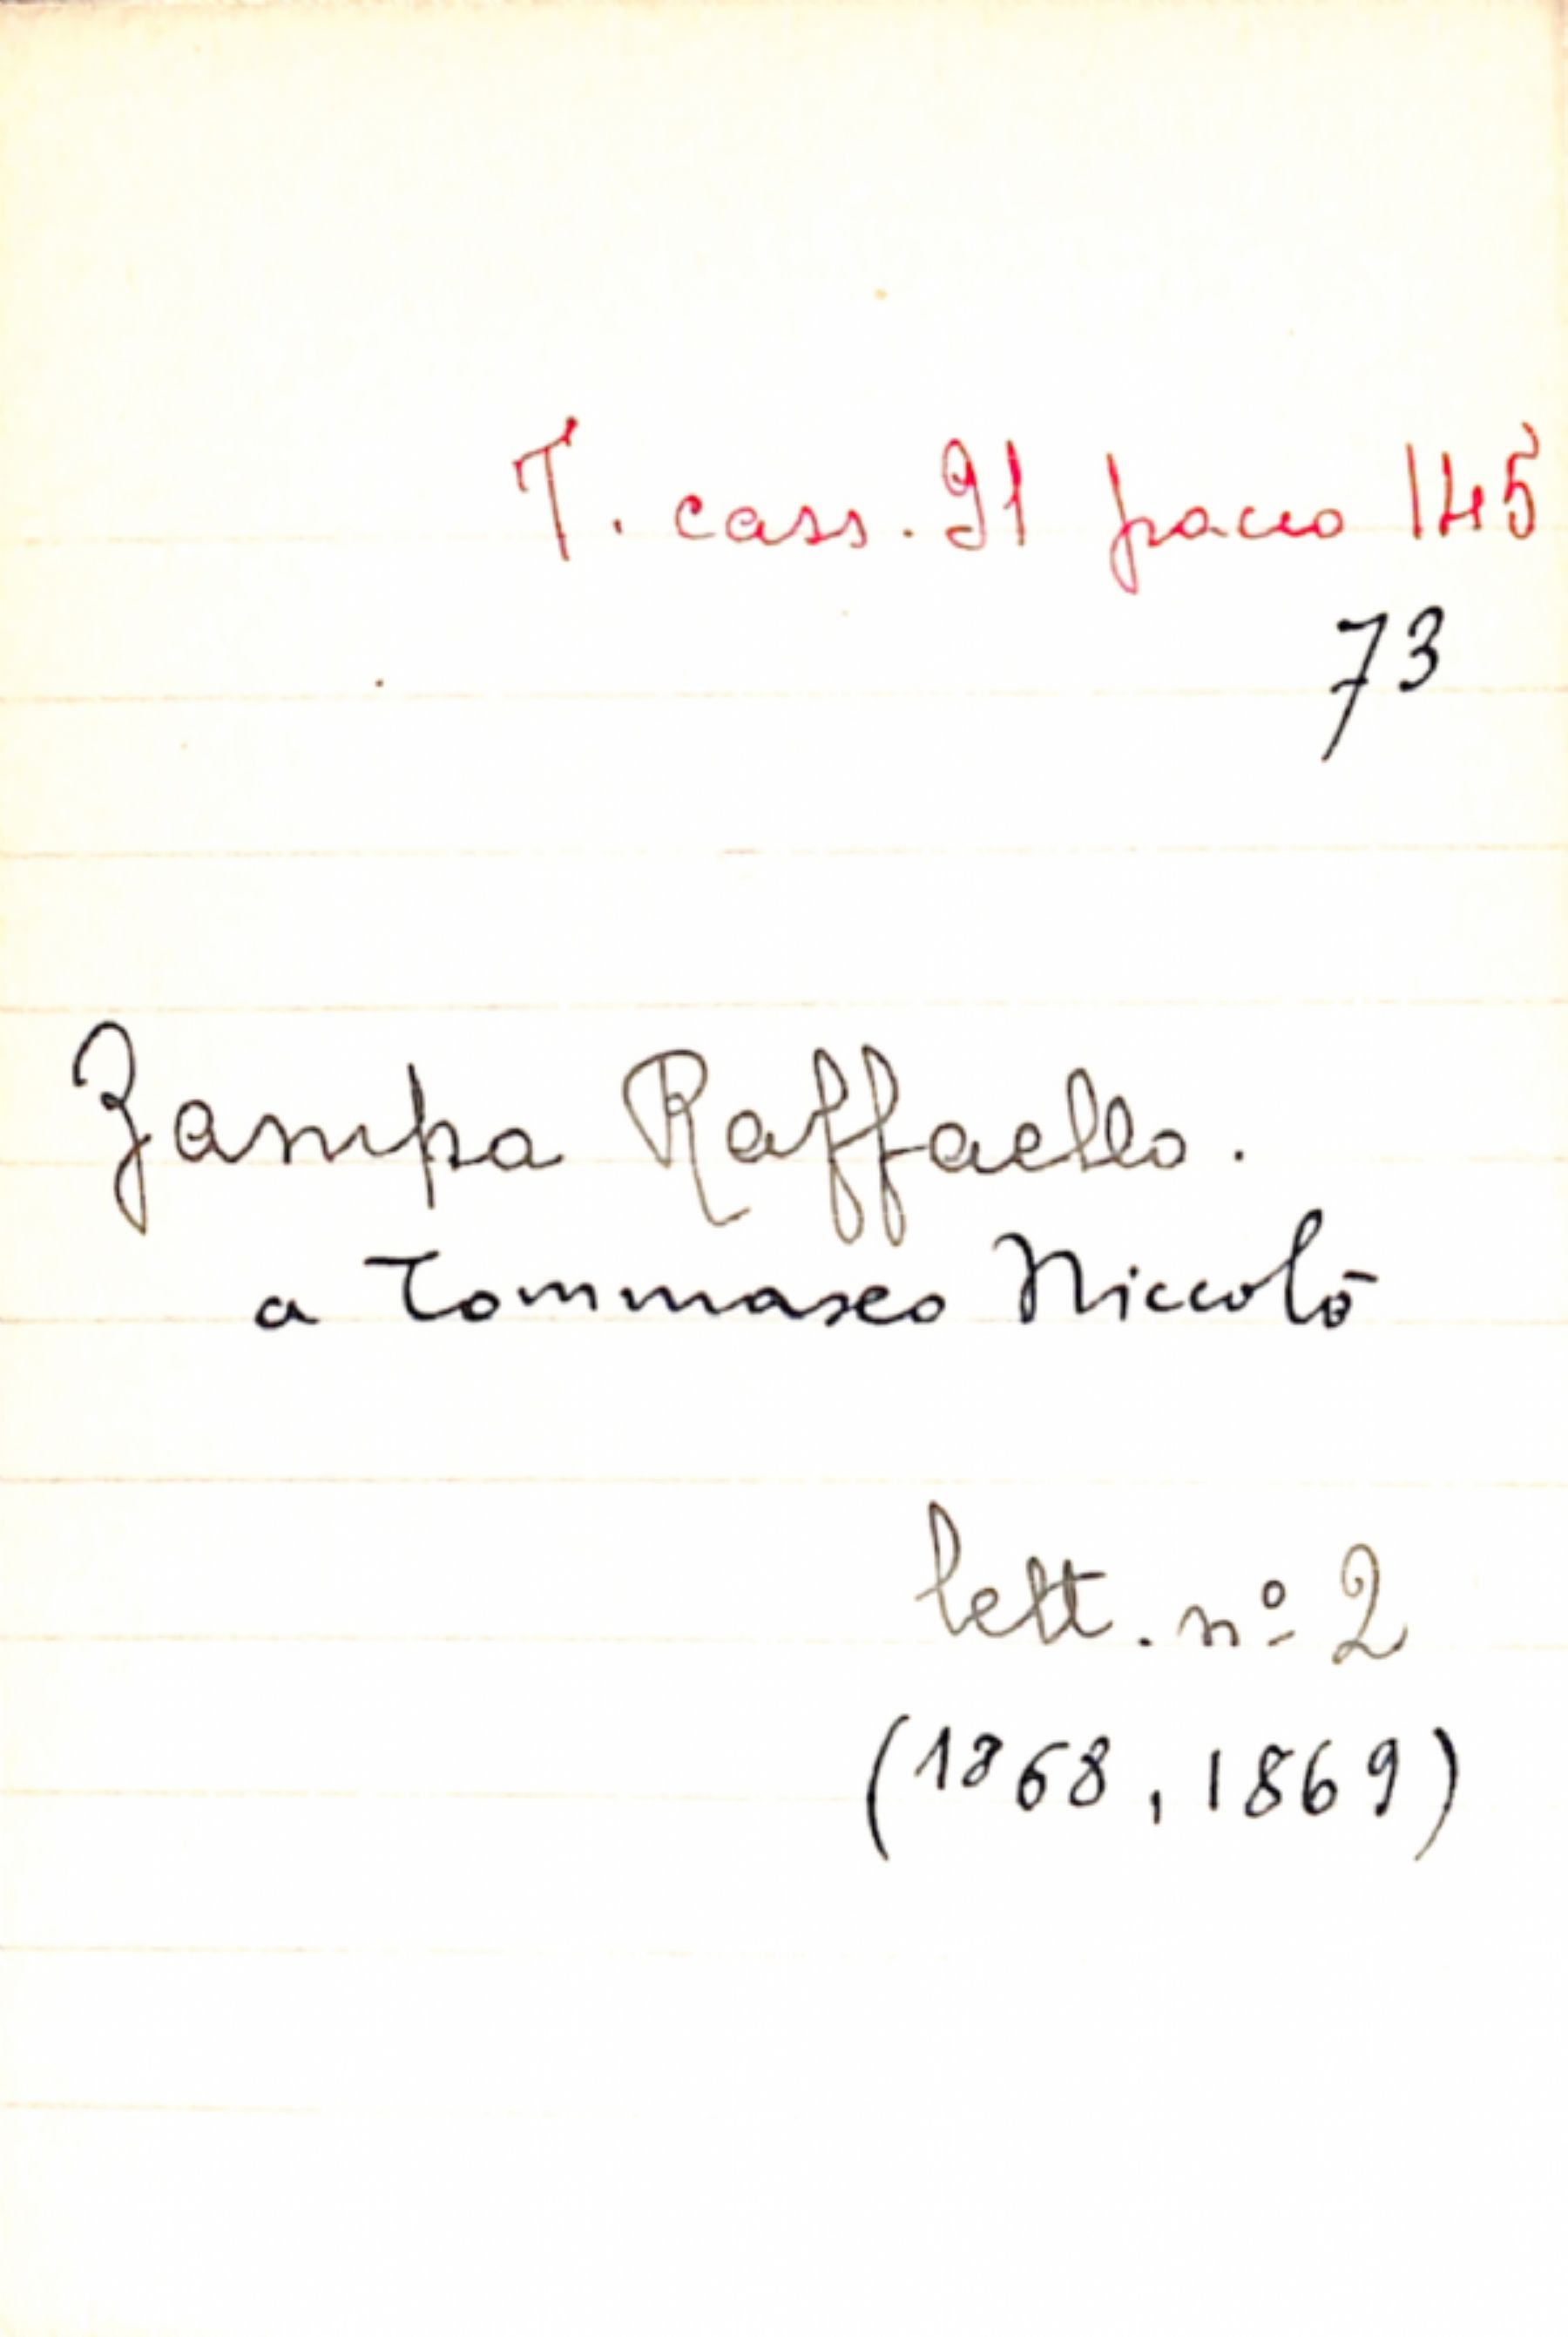 T. cass. 91 pacco 145
73
Zampa Raffaello.
a Tommaseo Niccolò
lett. nº 2
(1868, 1869)